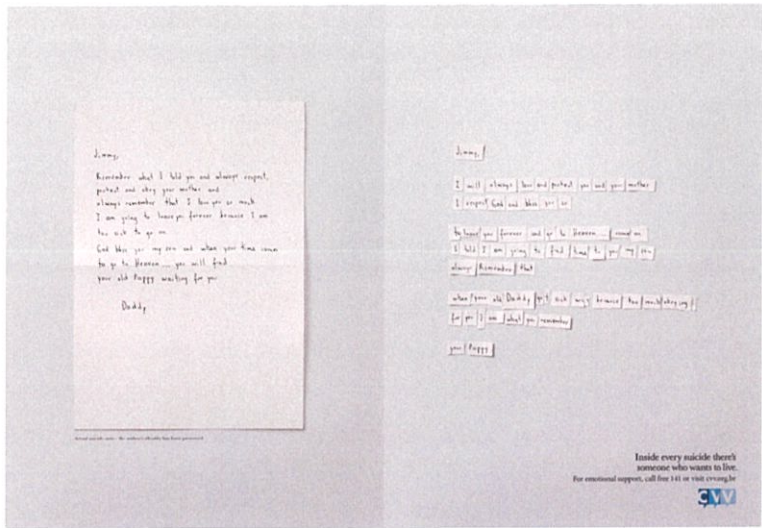 Jimmy,
Remember what I told you and always respect,
protect and obey your mother and
always remember that I love you so much
I am going to leave you forever because I am
too sick to go on.
God bless you my son and when your time comes
to go to Heaven... you will find
your old Pappy waiting for you
Daddy
Actual suicide note - the author's identity has been preserved
Jimmy,
I will always love and protect you and your mother
I respect God and bless you so
to leave you forever and go to Heaven...
I told I am going to find time to you my son
always Remember that
when your old Daddy sick because too much obey
for you I am what you remember
your Pappy
Inside every suicide there's
someone who wants to live.
For emotional support, call free 141 or visit cvv.org.br
CVV